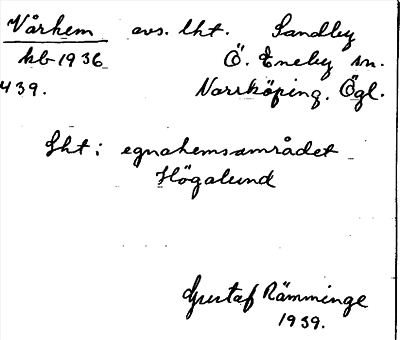 Vårhem avs. lht. Sandby
hb-1936 Ö. Eneby sn.
439. Norrköping. Ögl.
Lht: egnahemsområdet
Högalund
Gustaf Rämminge
1939.